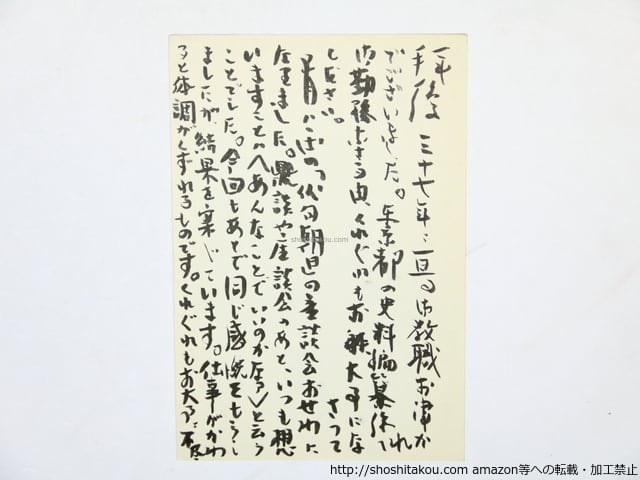 拝復 三十七年に亘る御教職お津か
れでございました。東京都の史料編纂係に
御勤務なさる由、くれぐれもお体大事にな
さって
ください。
の座談会おせわに
なりました。鼎談や座談会のあと、いつも想
いますこと(あんなことでいいのか)と云う
ことでした。今回もあとで同じ感慨をもうし
ましたが、結果を案じています。仕事がかわ
ると体調がくずれるものです。くれぐれもお大事に 不尽
shoshitakou.com
http://shoshitakou.com amazon等への転載・加工禁止